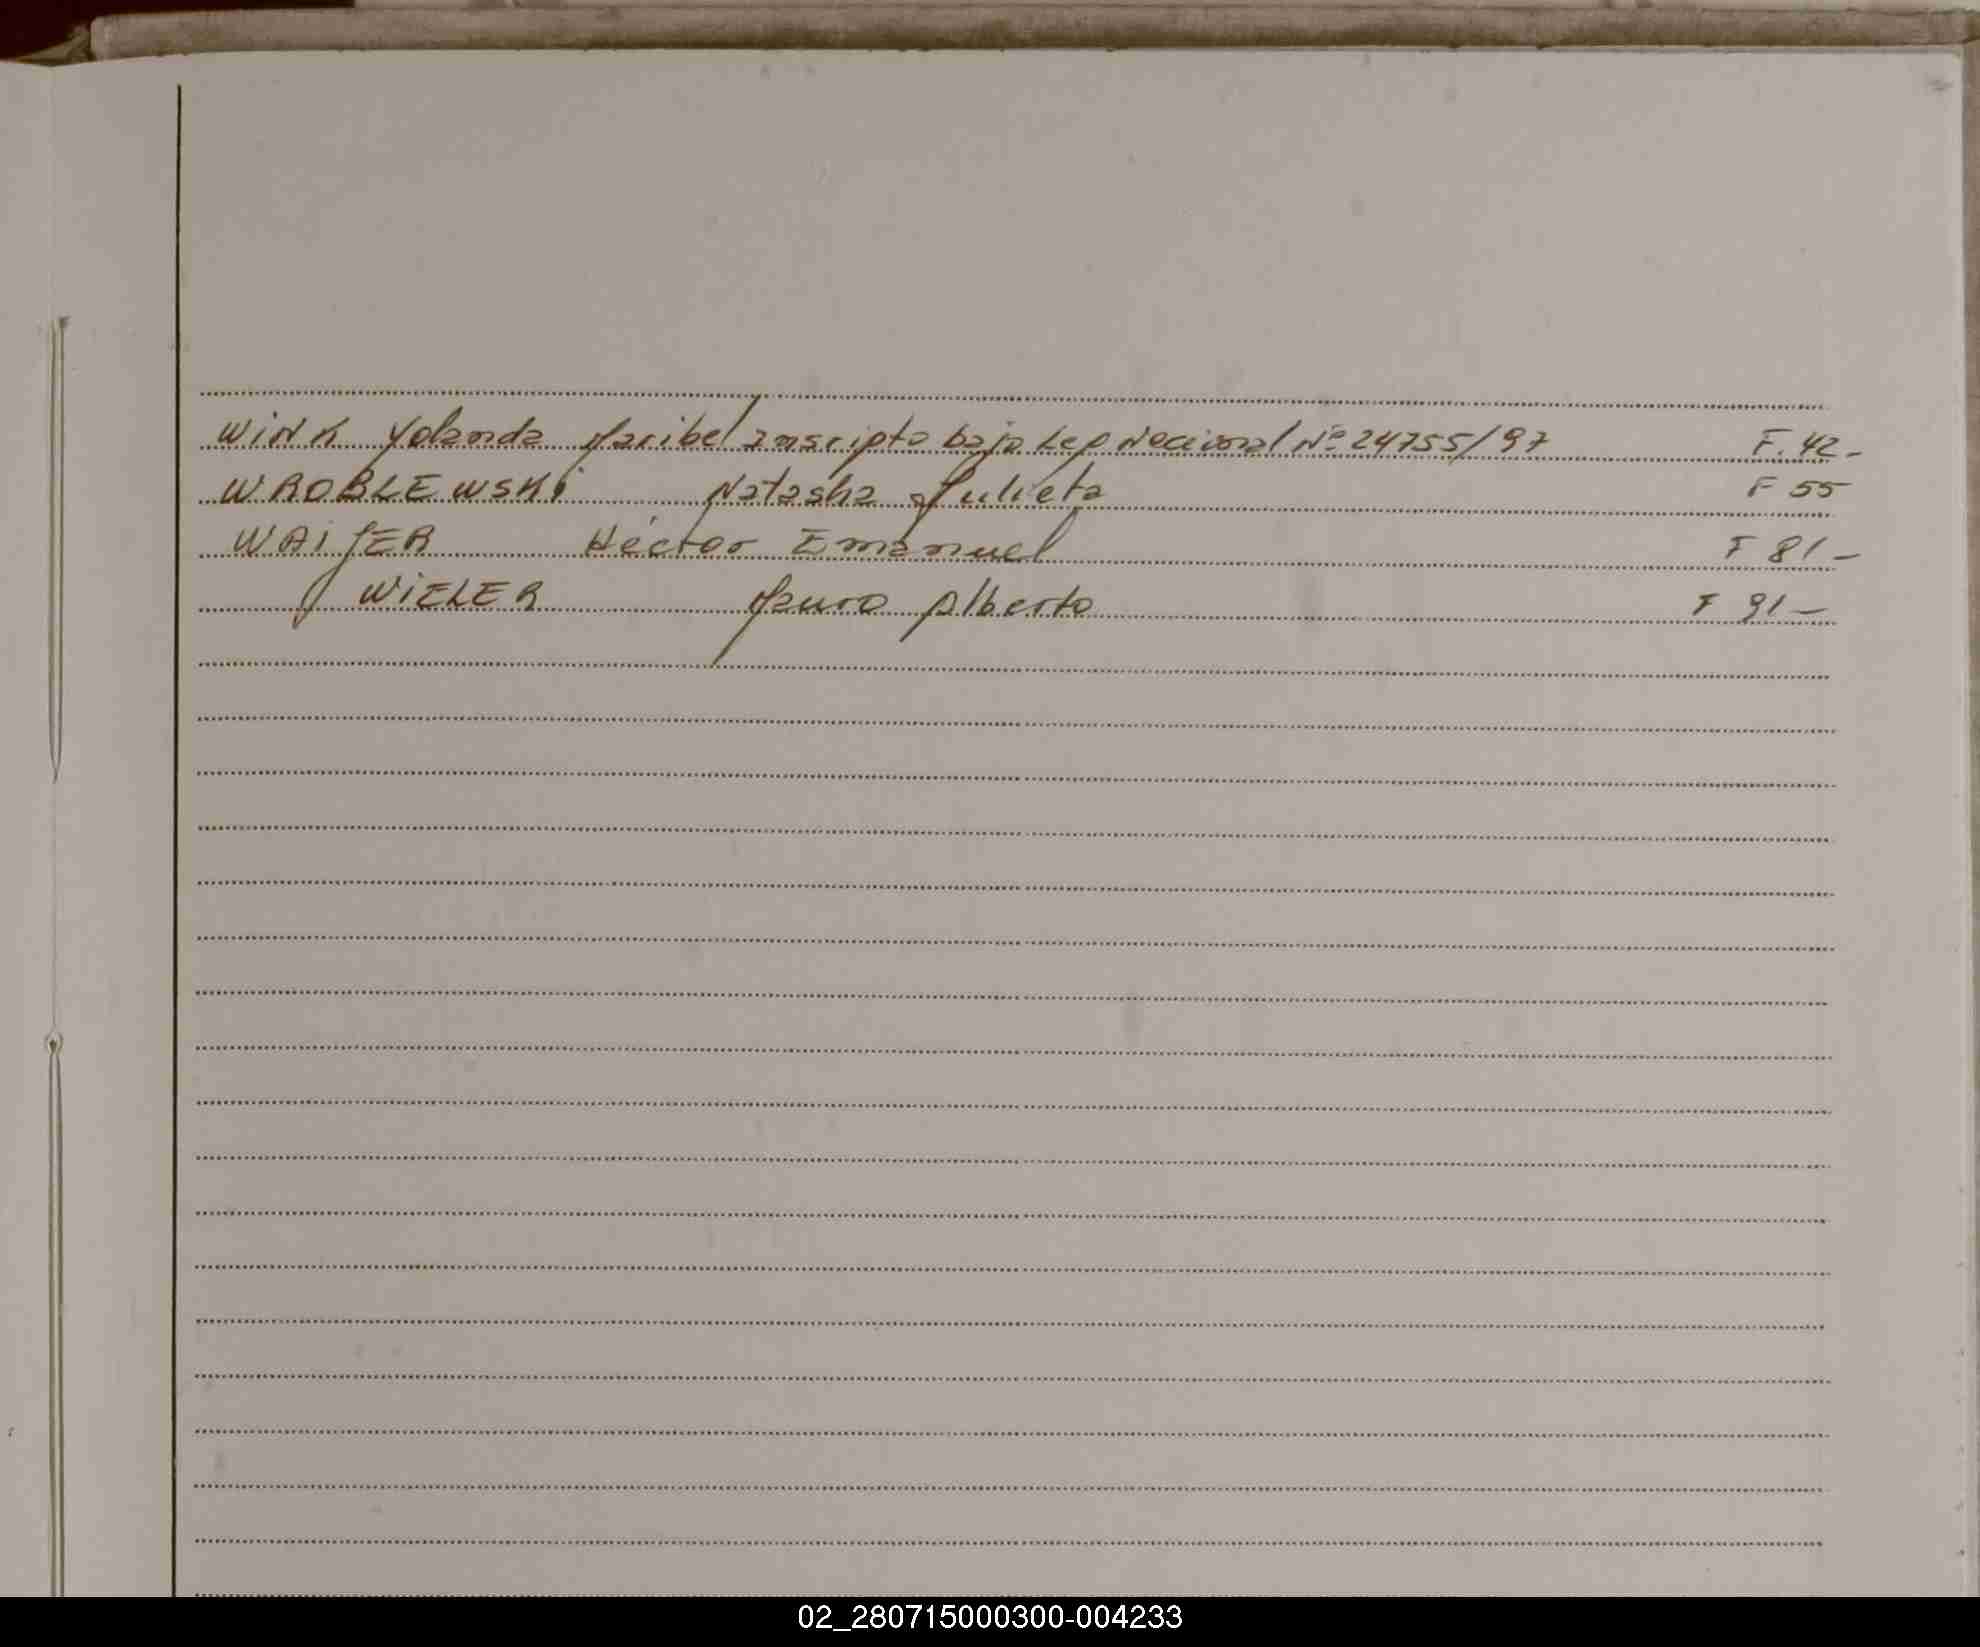 WINK Yolanda Maribel inscripta bajo Ley Nacional Nº 24755/97 F. 42-
WROBLEWSKI Natasha Julieta F 55
WAIJER Héctor Emanuel F 81-
WIELER Mauro Alberto F 91-
02_280715000300-004233